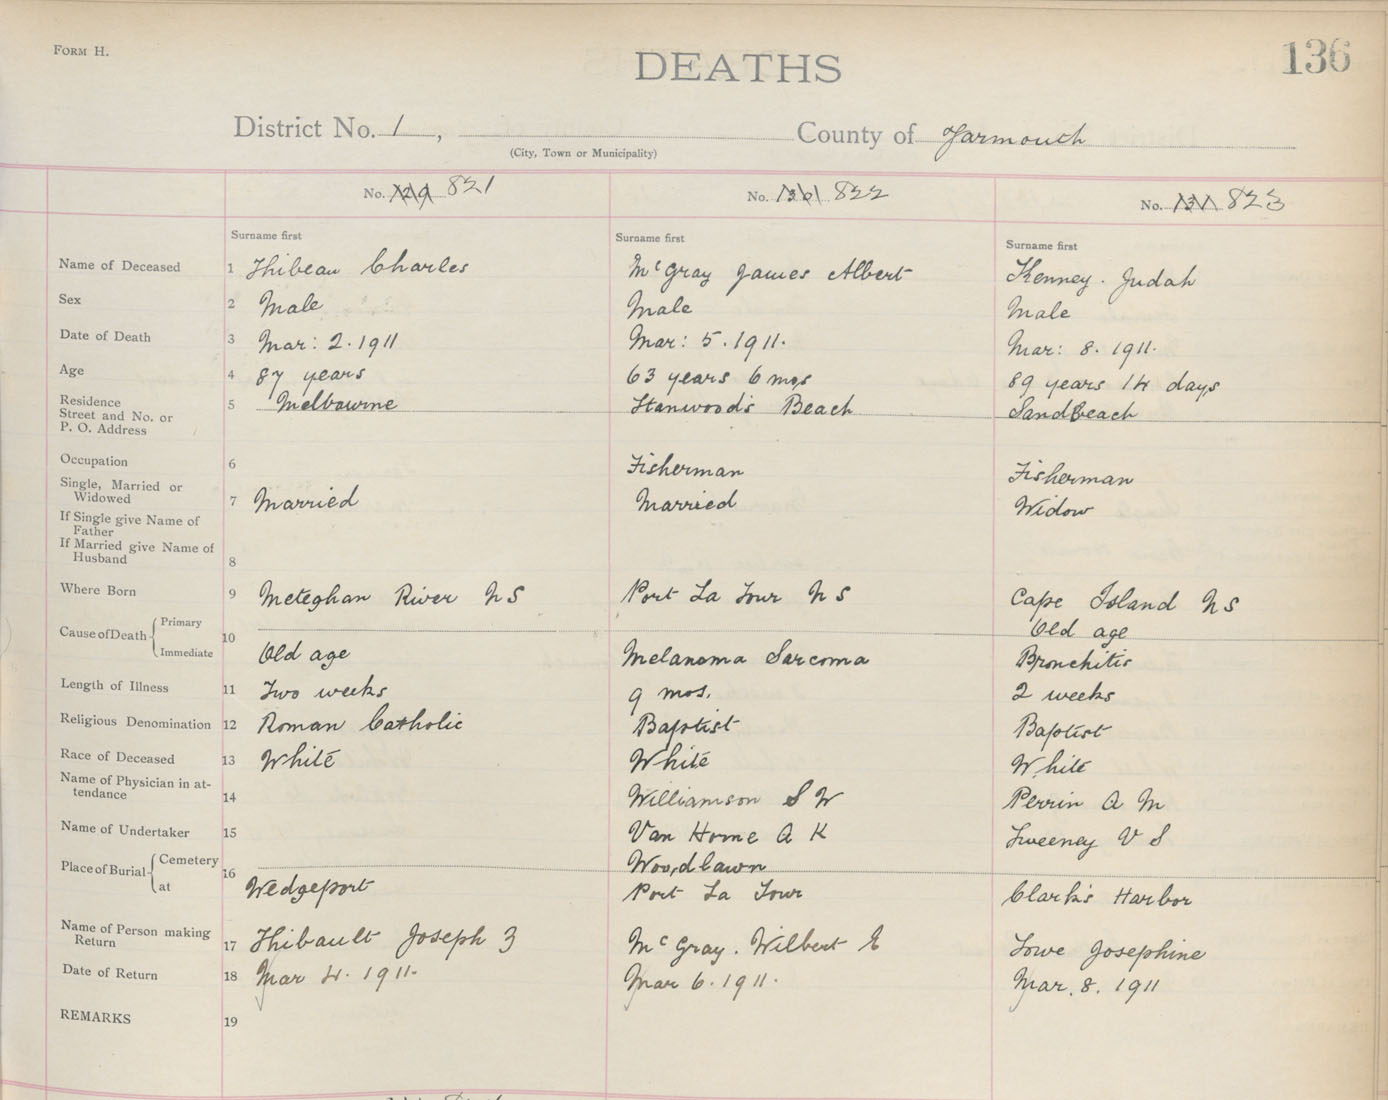 FORM H.
DEATHS
136
District No. 1, County of Yarmouth
(City, Town or Municipality)
No. 129 821 No. 130 822 No. 131 823
Surname first Surname first Surname first
Name of Deceased 1 Thibeau Charles McGray James Albert Kenney. Judah
Sex 2 Male Male Male
Date of Death 3 Mar: 2. 1911 Mar: 5. 1911. Mar: 8. 1911.
Age 4 87 years 63 years 6 mos 89 years 14 days
Residence
Street and No. or
P. O. Address 5 Melbourne Stanwood's Beach SandBeach
Occupation 6 Fisherman Fisherman
Single, Married or
Widowed 7 Married Married Widow
If Single give Name of
Father
If Married give Name of
Husband 8
Where Born 9 Meteghan River N S Port La Tour N S Cape Island N S
Cause of Death Primary 10 Old age
Immediate Old age Melanoma Sarcoma Bronchitis
Length of Illness 11 Two weeks 9 mos. 2 weeks
Religious Denomination 12 Roman Catholic Baptist Baptist
Race of Deceased 13 White White White
Name of Physician in at-
tendance 14 Williamson S W Perrin A M
Name of Undertaker 15 Van Horne A K Sweeney V S
Place of Burial Cemetery 16 Woodlawn
at Wedgeport Port La Tour Clark's Harbor
Name of Person making
Return 17 Thibault Joseph 3 McGray. Wilbert E Lowe Josephine
Date of Return 18 Mar 4. 1911. Mar 6. 1911. Mar. 8. 1911
REMARKS 19